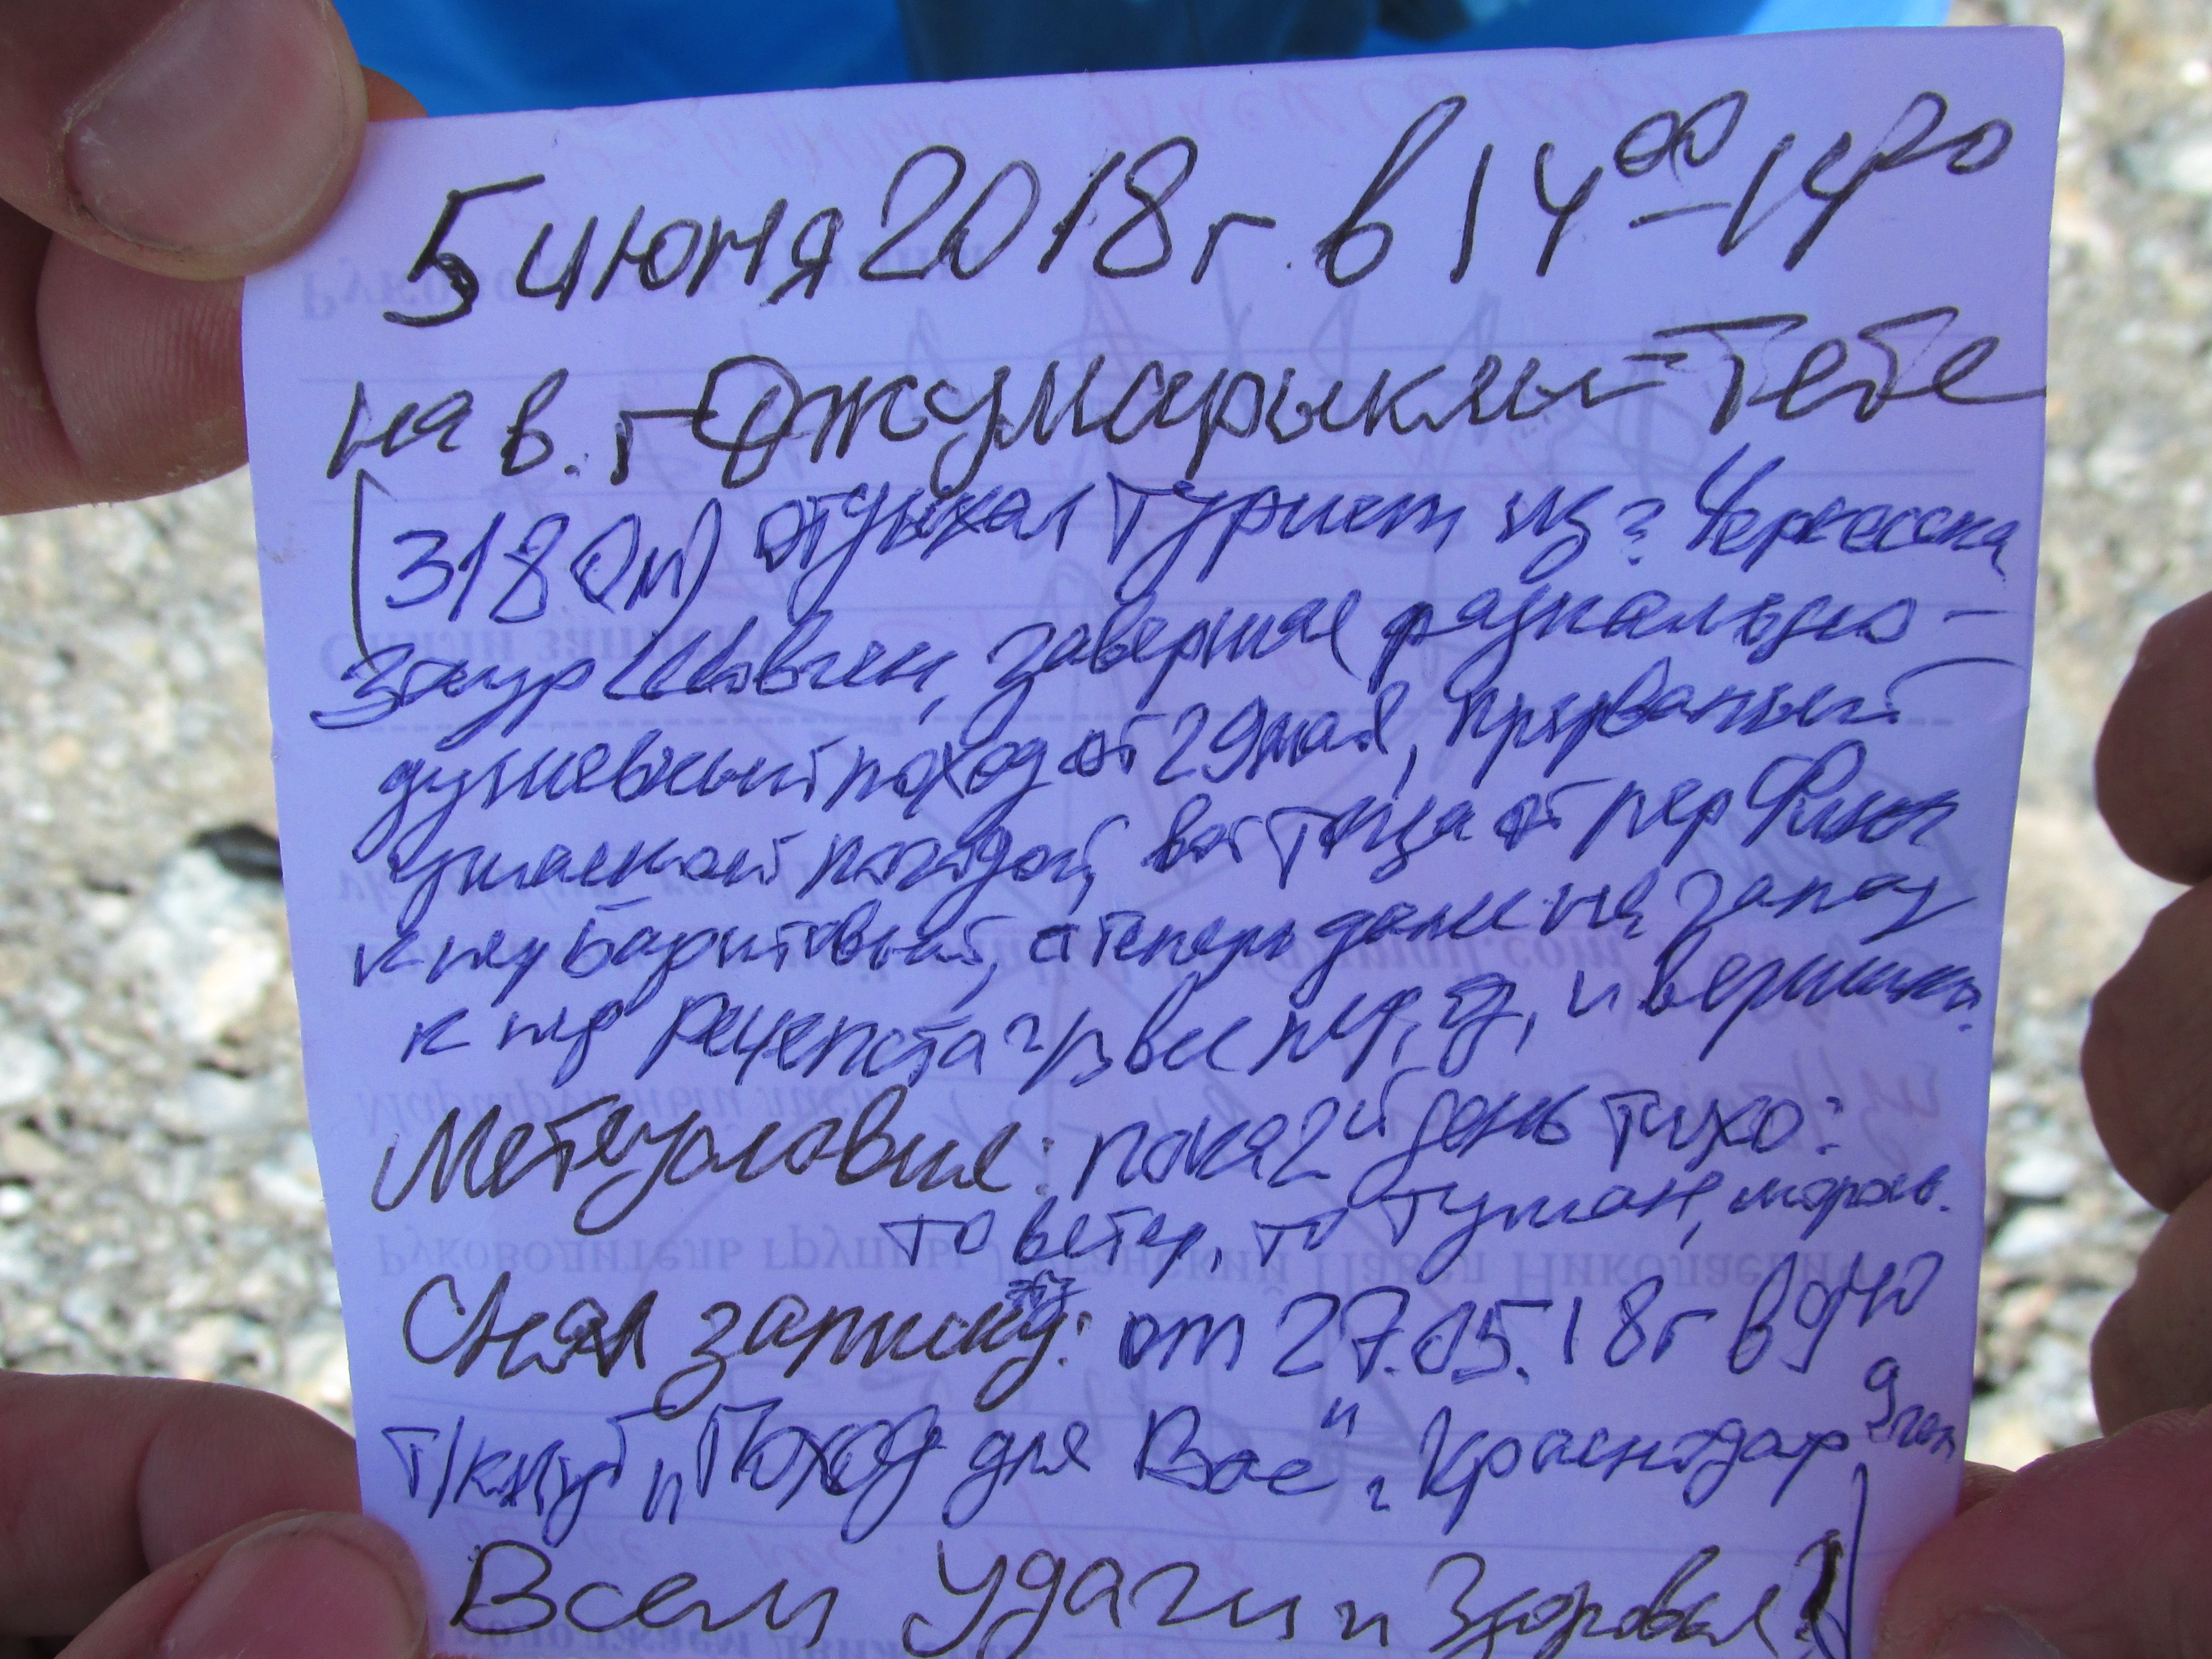 5 июня 2018 г. в 14⁰⁰–14²⁰
на в. г Джумарыклы-Тебе
(3180м) отдыхал турист из г Черкесска
Заур Шовген, завершая радиально-
душевный поход от 29 мая, прерванный
ужасной погодой, восточнее от пер Фишт
к пер Баритовый, а теперь даже на запад
к пер Рецепста ч/з все пер, и вершинки.
Метеусловия: пока 2й день тихо:
то ветер, то туман, морось.
Снял записку: от 27.05.18г в 9⁴⁰
т/клуб „Поход для Вас" г. Краснодар 9 чел
Всем удачи и здоровья!